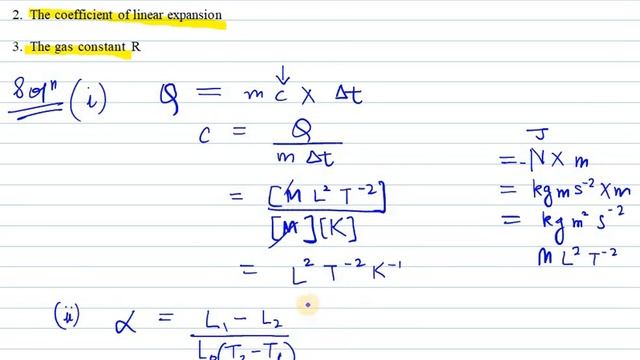 2. The coefficient of linear expansion
3. The gas constant R
Solⁿ (i) Q = m c × Δt
c = Q / m Δt
= [M L² T⁻²] / [M][K]
= L² T⁻² K⁻¹
J
= N × m
= kg m s⁻² × m
= kg m² s⁻²
M L² T⁻²
(ii) α = L₁ − L₂ / L₀(T₂ − T₁)